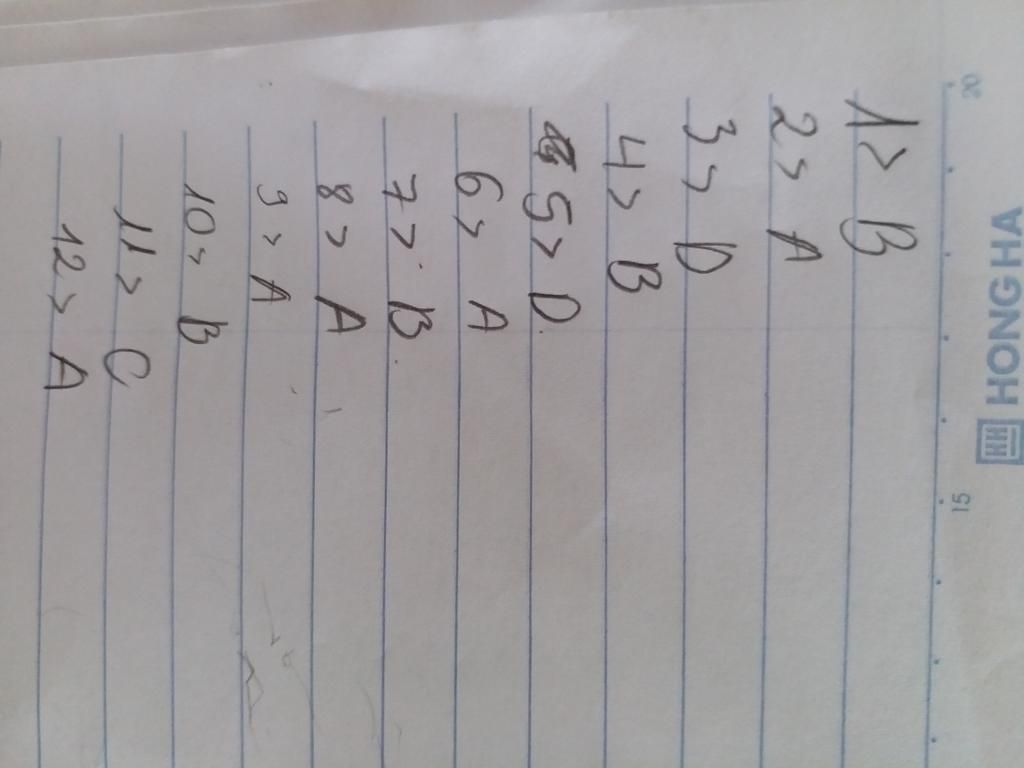 20
HH HONG HA
15
1> B
2> A
3> D
4> B
5> D.
6> A
7> B.
8> A
9> A
10> B
11> C
12> A